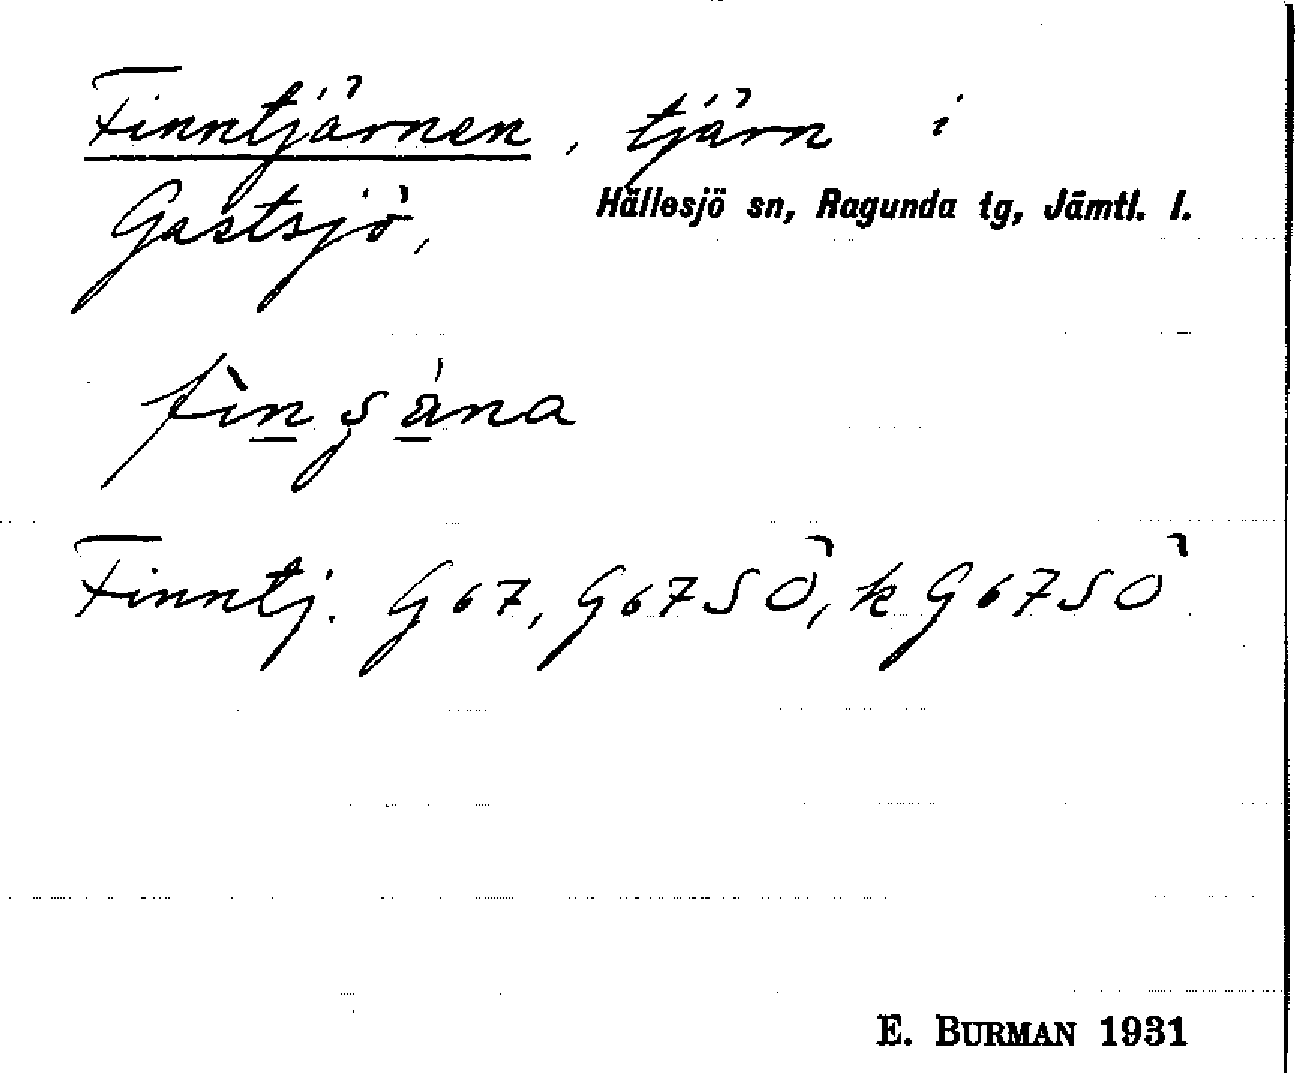 Finntjärnen, tjärn i
Gastsjö, Hällesjö sn, Ragunda tg, Jämtl. l.
Finntj. G67, G67SÖ, k G67SÖ
E. BURMAN 1931